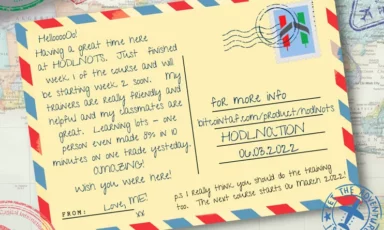 HellooooOo!
Having a great time here
at HODLNOTS. Just finished
week 1 of the course and will
be starting week 2 soon. My
trainers are really friendly and
helpful and my classmates are
great. Learning lots - one
person even made 89% in 10
minutes on one trade yesterday.
AMAZING!
Wish you were here!
Love, ME!
xx
FROM:
for more info
bitcointaf.com/product/hodlnots
HODLNATION
06.03.2022
p.s I really think you should do the training
too. The next course starts 06 March 2022!